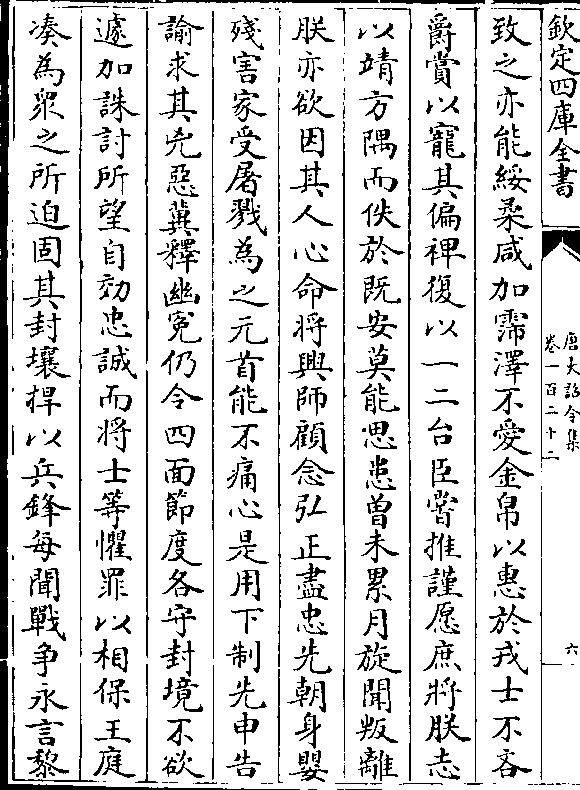 欽定四庫全書
唐大詔令集
卷一百二十二
六
致之亦能綏柔咸加霈澤不愛金帛以惠於戎士不吝
爵賞以寵其偏裨復以一二台臣嘗推謹愿庶將朕志
以靖方隅而佚於既安莫能思患曾未累月旋聞叛離
朕亦欲因其人心命將興師顧念弘正盡忠先朝身嬰
殘害家受屠戮為之元首能不痛心是用下制先申告
諭求其兇惡冀釋幽寃仍令四面節度各守封境不欲
遽加誅討所望自効忠誠而將士等懼罪以相保王庭
湊為衆之所迫固其封壤捍以兵鋒每聞戰争永言黎